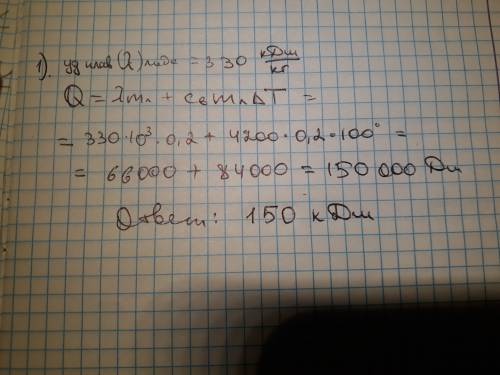 1). уд плав (λ) льда = 330 кДж/кг
Q = λmл + cвmлΔT =
= 330·10³·0,2 + 4200·0,2·100° =
= 66000 + 84000 = 150 000 Дж
Ответ: 150 кДж